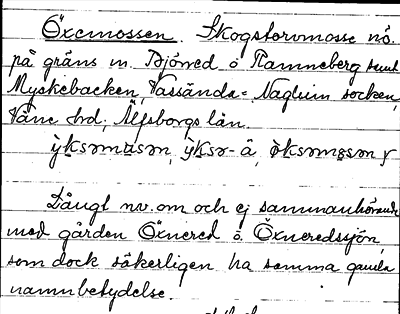 Öxemossen. Skogstorvmosse nö.
på gräns m. Björred o Ramneberg samt
Myskebacken, Vassända-Naglum socken,
Väne hd, Älfsborgs län.
ỳksəmɯsən, ỳksə- â,
Långt nv. om och ej sammanhörande
med gården Öxnered o. Öxneredssjön,
som dock säkerligen ha samma gamla
namnbetydelse.